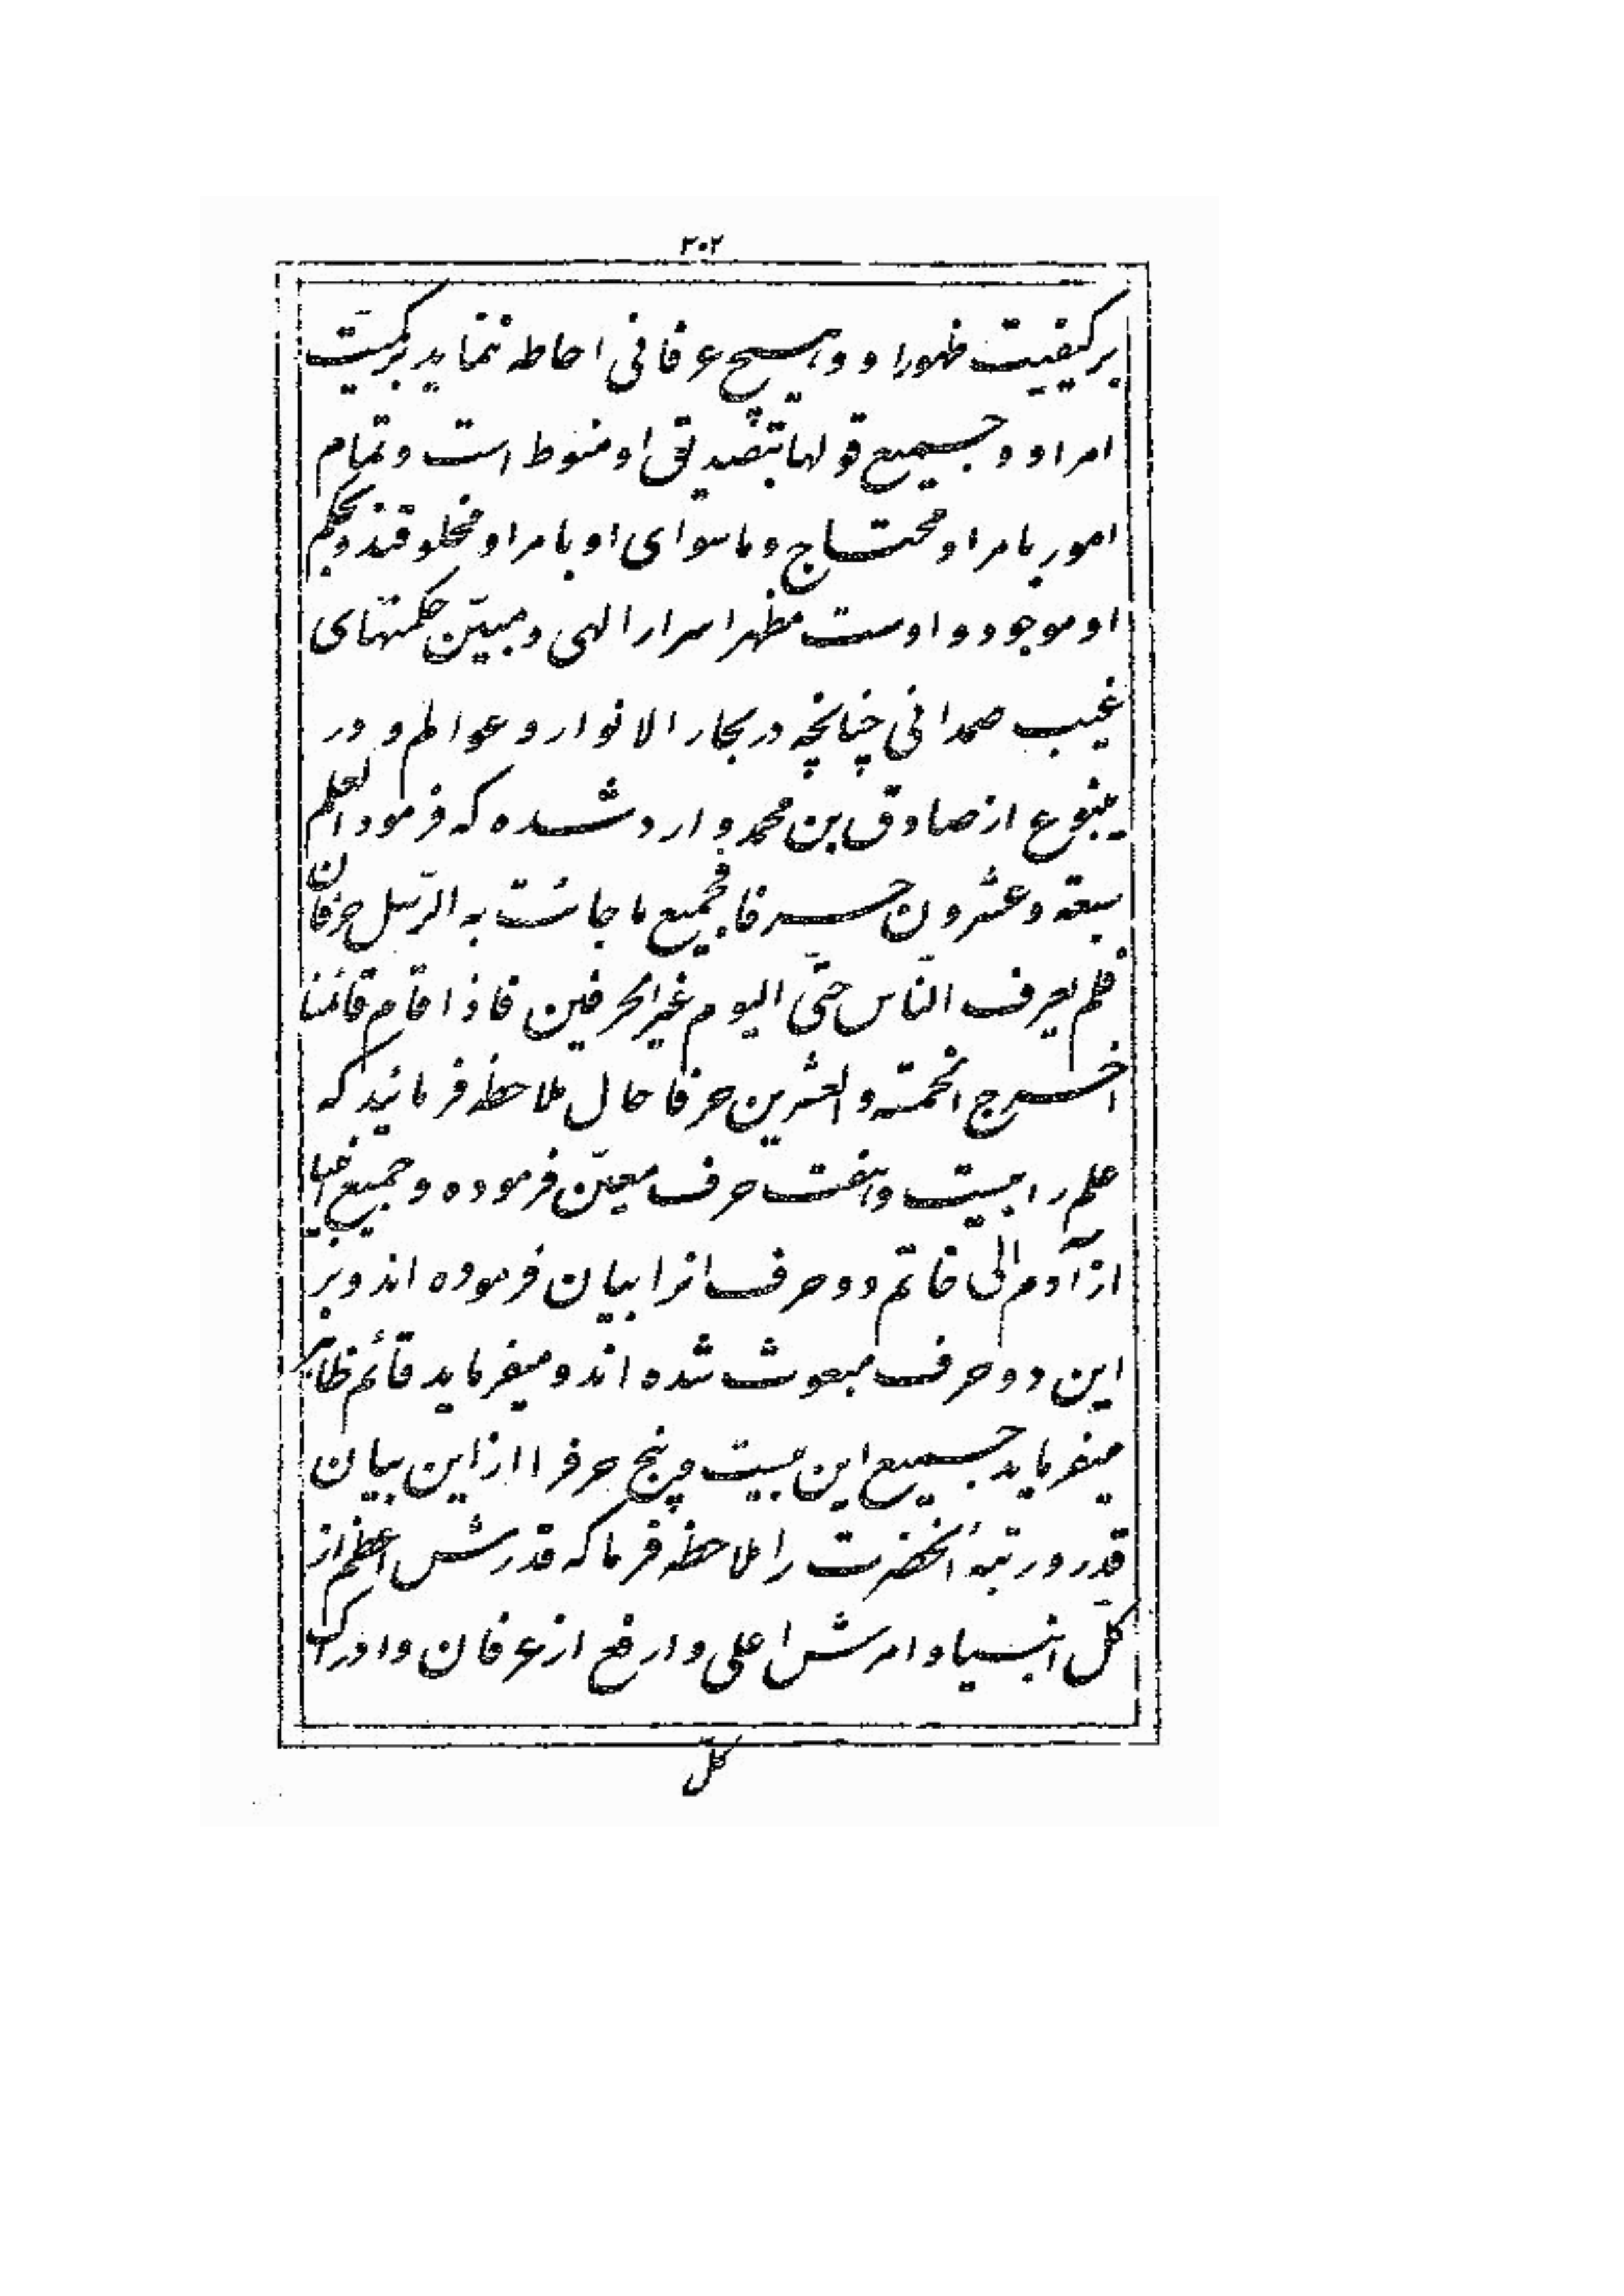 ۲۰۲
بر کیفیت ظهور او و هیچ عرفانی احاطه ننماید بر کمیّت
امر او و جمیع قولها بتصدیق او منوط است و تمام
امور بامر او محتاج و ماسوای او بامر او مخلوقند و بحکم
او موجود و اوست مظهر اسرار الهی و مبیّن حکمتهای
غیب صمدانی چنانچه در بحار الانوار و عوالم و در
ینبوع از صادق بن محمد وارد شده که فرمود العلم
سبعة و عشرون حرفا فجمیع ما جائت به الرّسل حرفان
فلم یعرف النّاس حتّی الیوم غیر الحرفین فاذا قام قائمنا
اخرج الخمسة و العشرین حرفا حال ملاحظه فرمائید که
علم را بیست و هفت حرف معیّن فرموده و جمیع انبیا
از آدم الی خاتم دو حرف انرا بیان فرموده اند و بر
این دو حرف مبعوث شده اند و میفرماید قائم ظاهر
میفرماید جمیع این بیست و پنج حرف را از این بیان
قدر و رتبهٔ انحضرت را ملاحظه فرما که قدرش اعظم از
کلّ انبیا و امرش اعلی و ارفع از عرفان و ادراک
کلّ